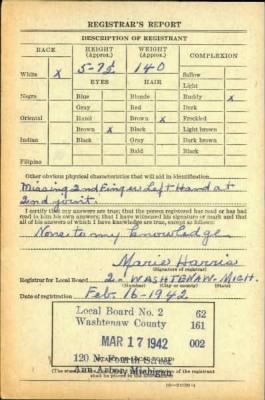 REGISTRAR'S REPORT
DESCRIPTION OF REGISTRANT
RACE HEIGHT (Approx.) WEIGHT (Approx.) COMPLEXION
White x 5-7½ 140 Sallow
EYES HAIR Light
Negro Blue Blonde Ruddy x
Gray Red Dark
Oriental Hazel Brown x Freckled
Brown x Black Light brown
Indian Black Gray Dark brown
Bald Black
Filipino
Other obvious physical characteristics that will aid in identification
Missing 2nd Finger Left Hand at
2nd joint.
I certify that my answers are true; that the person registered has read or has had
read to him his own answers; that I have witnessed his signature or mark and that
all of his answers of which I have knowledge are true, except as follows:
None to my knowledge
Marie Harris
(Signature of registrar)
Registrar for Local Board 2- WASHTENAW- MICH.
(Number) (City or county) (State)
Date of registration Feb. 16-1942
Local Board No. 2 62
Washtenaw County 161
MAR 17 1942 002
120 N. Fourth Street
Ann Arbor, Michigan